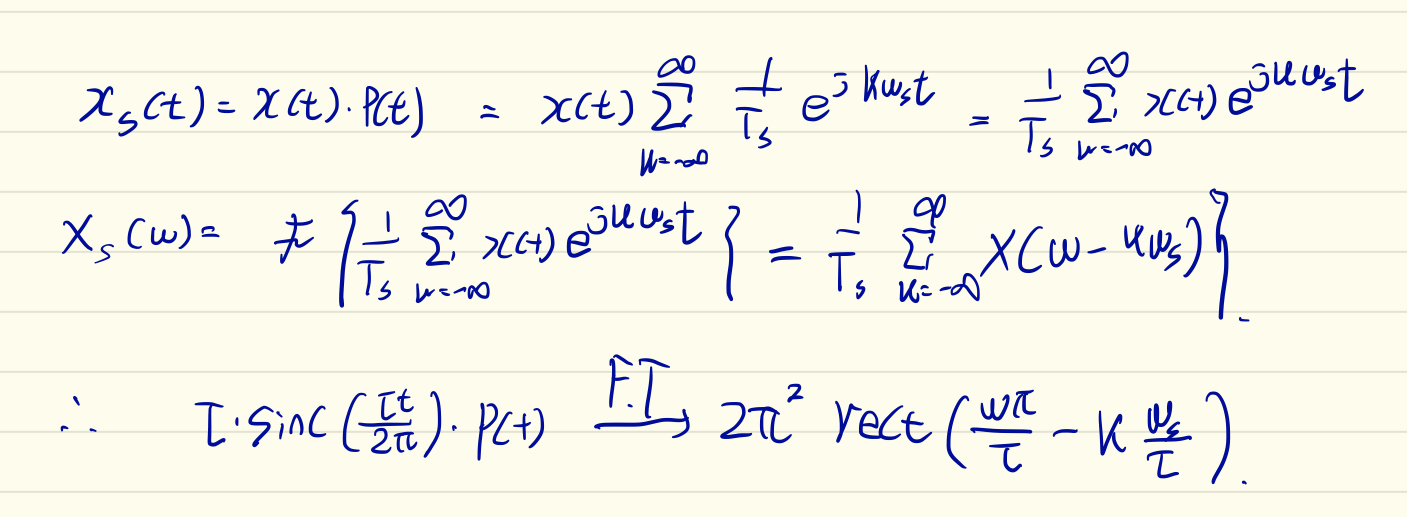 x_s(t) = x(t)·P(t) = x(t) ∑_{k=-∞}^{∞} 1/T_s e^{jkω_s t} = 1/T_s ∑_{k=-∞}^{∞} x(t) e^{jkω_s t}
X_s(ω) = F { 1/T_s ∑_{k=-∞}^{∞} x(t) e^{jkω_s t} } = 1/T_s ∑_{k=-∞}^{∞} X(ω - kω_s) }.
∴ τ·sinc(τt/2π)·P(t) \xrightarrow{F.T} 2π² rect(ωπ/τ - k ω_s/τ).